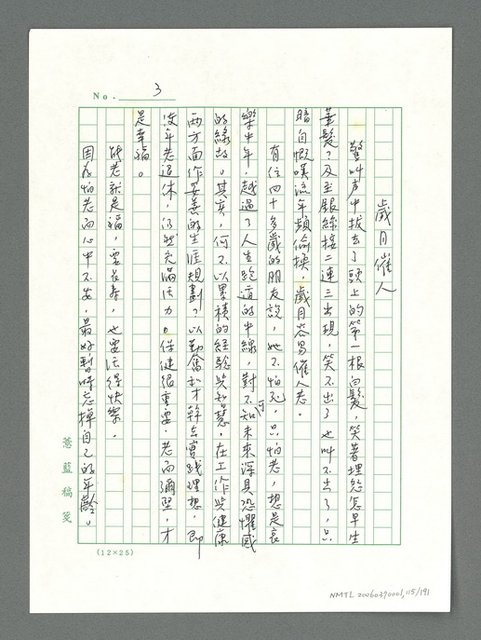 No. 3
歲月催人
驚叫声中拔去了頭上的第一根白髮，笑著埋怨怎早生
華髮？及至銀絲接二連三出現，笑不出了也叫不出了，只
暗自慨嘆流年頻偷換，歲月容易催人老。
有位四十多歲的朋友說，她不怕死，只怕老，想是哀
樂中年，越過了人生跑道的中線，對不可知未來深具恐懼感
的緣故。其實，何不以累積的經驗與知慧，在工作與健康
兩方面作妥善的生涯規劃？以勤奮和才幹去實踐理想，即
使年老退休，仍然充滿活力。保健很重要，老而彌堅，才
是幸福。
能老就是福，要長壽，也要活得快樂。
因為怕老而心中不安，最好暫時忘掉自己的年齡。
蕙藍稿箋
(12×25)
NMTL 20060390001, 115/191